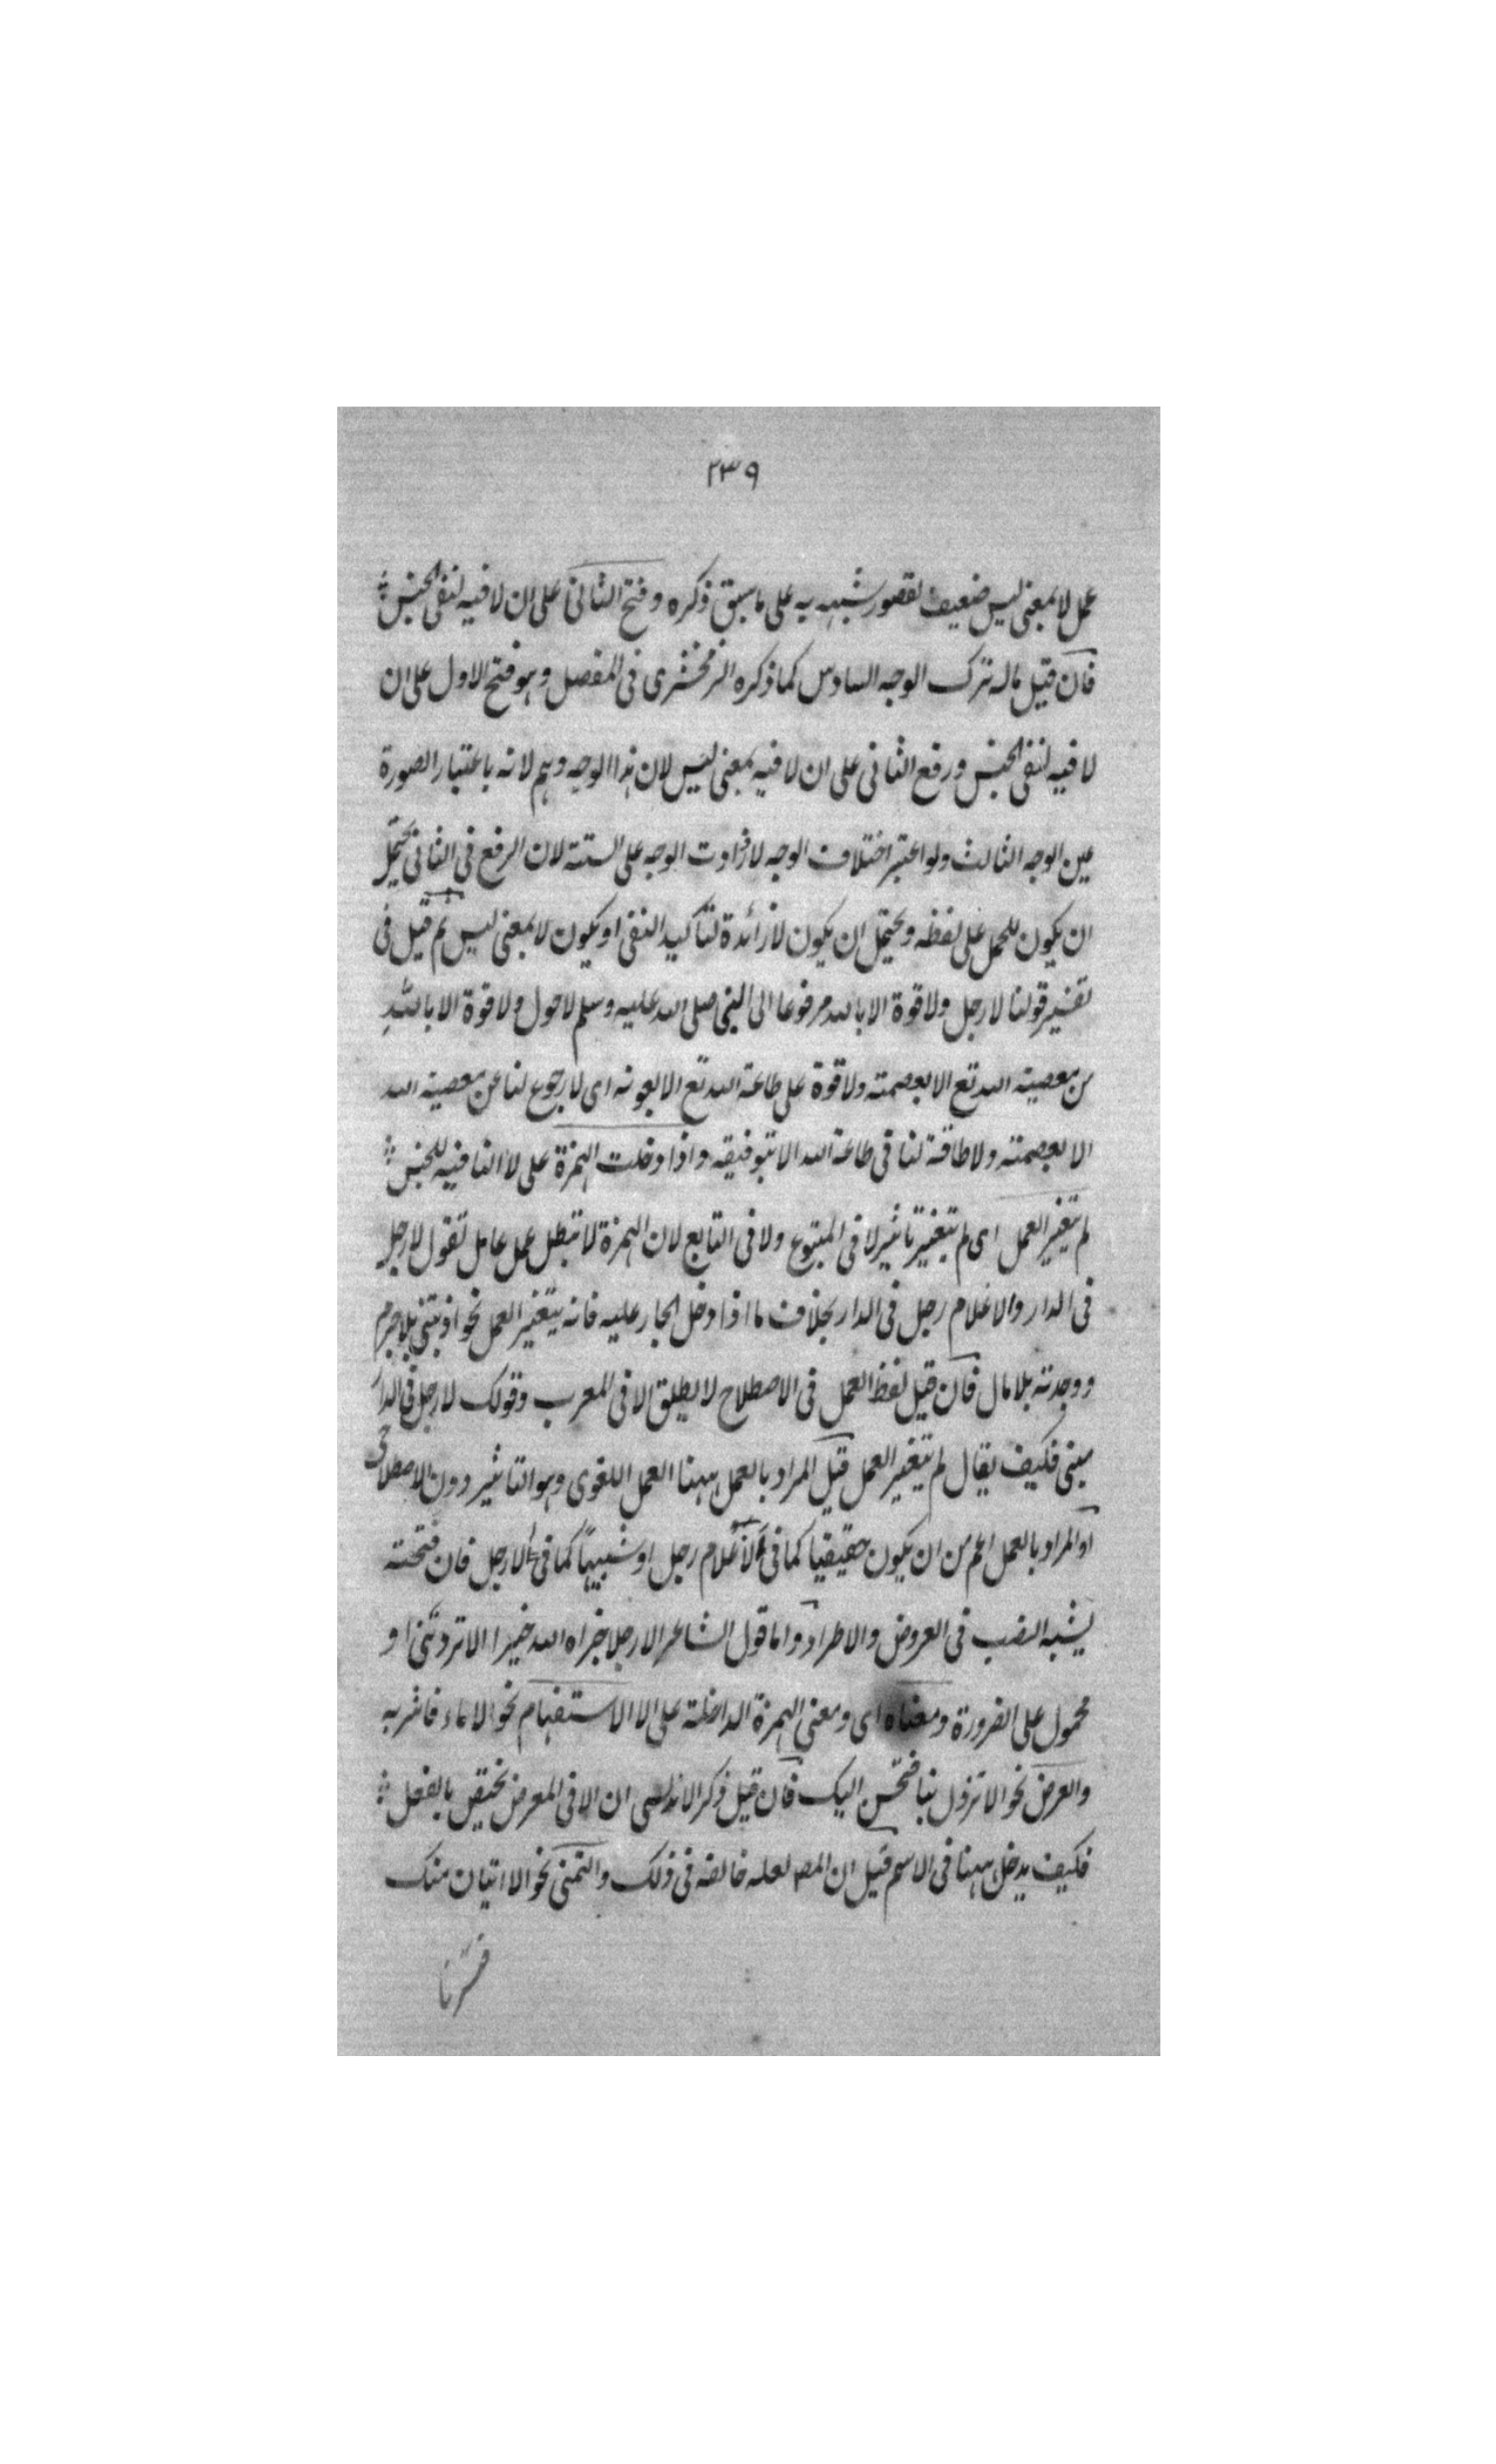 ٢٣٩
عمل لا بمعنى ليس ضعيف لقصور شبهه به على ما سبق ذكره وفتح الثانى على ان لا فيه لنفى الجنس
فان قيل ماله ترك الوجه السادس كما ذكره الزمخشرى فى المفصل وهو فتح الاول على ان
لا فيه لنفى الجنس ورفع الثانى على ان لا فيه بمعنى ليس لان هذا الوجه وهم لانه باعتبار الصورة
عين الوجه الثالث ولو اعتبر اختلاف الوجه لازدادت الوجه على الستة لان الرفع فى الثانى يحتمل
ان يكون للحمل على لفظه ويحتمل ان يكون لا زائدة لتاكيد النفى او يكون لا بمعنى ليس ثم قيل فى
تفسير قولنا لا رجل ولا قوة الا بالله مرفوعا الى النبى صلى الله عليه وسلم لا حول ولا قوة الا بالله
من معصية الله تع الا بعصمته ولا قوة على طاعة الله تع الا بعونه اى لا رجوع لنا عن معصية الله
الا بعصمته ولا طاقة لنا فى طاعة الله الا بتوفيقه واذا دخلت الهمزة على لا النافية للجنس
لم يتغير العمل اى لم يتغير تاثير لا فى المتبوع ولا فى التابع لان الهمزة لا تبطل عمل عامل تقول لا رجل
فى الدار والا غلام رجل فى الدار بخلاف ما اذا دخل الجار عليه فانه يتغير العمل نحو اذيتنى بلا جرم
ووجدته بلا مال فان قيل لفظ العمل فى الاصطلاح لا يطلق الا فى المعرب وقولك لا رجل فى الدار
مبنى فكيف يقال لم يتغير العمل قيل المراد بالعمل ههنا العمل اللغوى وهو التاثير دون الاصطلاحى
او المراد بالعمل اعم من ان يكون حقيقيا كما فى الا غلام رجل او شبيها كما فى الا رجل فان فتحته
يشبه النصب فى العروض والاطراد واما قول الشاعر الا رجلا جزاه الله خيرا الا تردتنى او
محمول على الضرورة ومعناه اى ومعنى الهمزة الداخلة على الا الاستفهام نحو الا ماء فاشربه
والعرض نحو الا تزول بنا فتحسن اليك فان قيل ذكر الاندلسى ان الا فى المعرض يختص بالفعل
فكيف يدخل ههنا فى الاسم قيل ان المصـ لعله خالفه فى ذلك والتمنى نحو الا اتيان منك